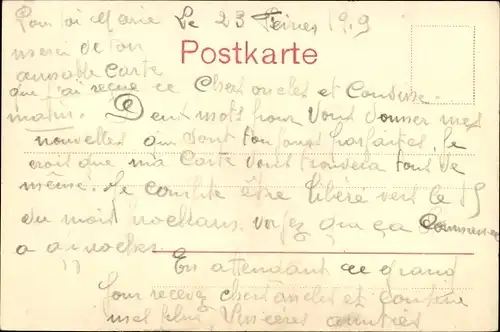 Pour toi Marie Le 23 Feiner 1919
merci de ton
Postkarte
aimable Carte
que j'ai reçue ce Chers oncles et Cousine.
matin. Deux mots pour vous donner mes
nouvelles qui sont toujours parfaites. Je
crois que ma Carte vous trouvera tous de
même. Je compte être libéré vers le 15
du mois prochain. voyez que ça Commence
a approcher.
En attendant ce grand
jour recevez chers oncles et cousine
mes plus sincères